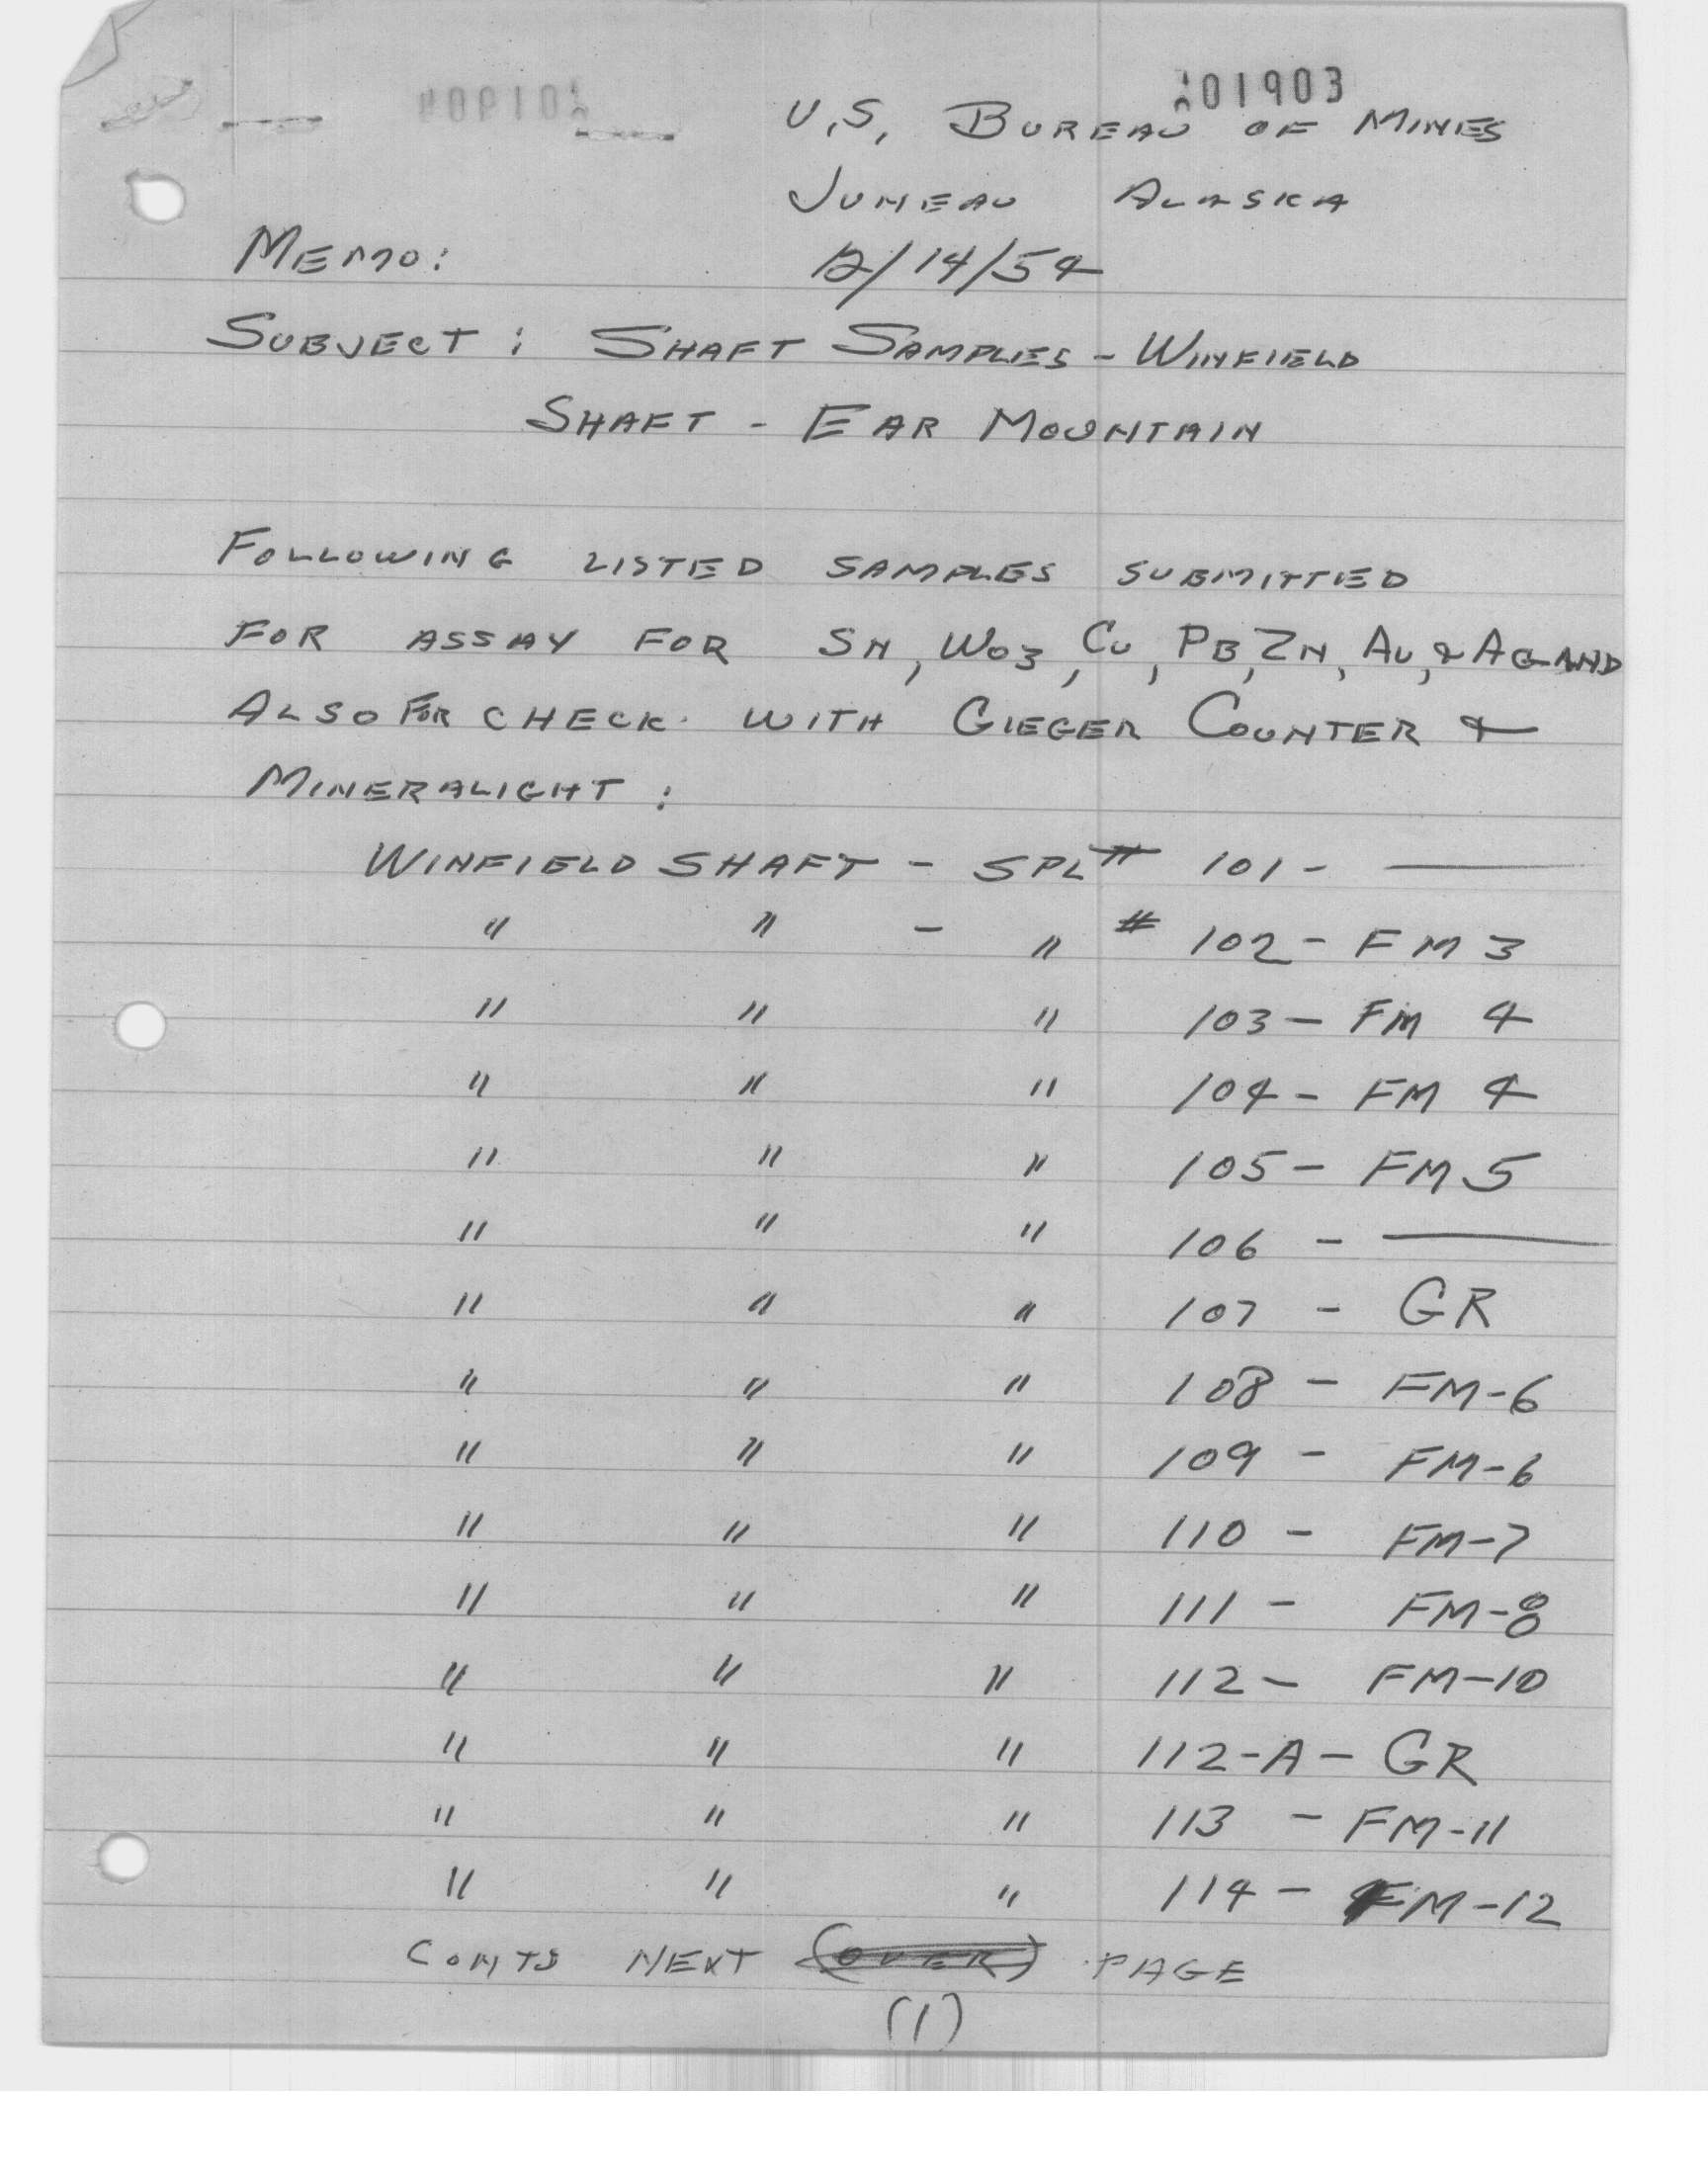 01903
U.S. BUREAU OF MINES
JUNEAU ALASKA
MEMO:
12/14/54
SUBJECT: SHAFT SAMPLES - WINFIELD
SHAFT - EAR MOUNTAIN
FOLLOWING LISTED SAMPLES SUBMITTED
FOR ASSAY FOR SN, WO3, CU, PB, ZN, AU, & AG AND
ALSO FOR CHECK WITH GIEGER COUNTER &
MINERALIGHT:
WINFIELD SHAFT - SPL # 101 - ———
" " - " # 102 - FM 3
" " " 103 - FM 4
" " " 104 - FM 4
" " " 105 - FM 5
" " " 106 - ———
" " " 107 - GR
" " " 108 - FM-6
" " " 109 - FM-6
" " " 110 - FM-7
" " " 111 - FM-8
" " " 112 - FM-10
" " " 112-A - GR
" " " 113 - FM-11
" " " 114 - FM-12
NEXT (OVER) PAGE
(1)